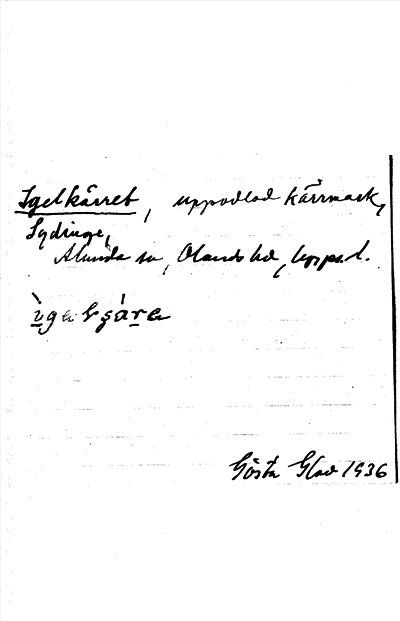 Igelkärret, uppodlad kärrmark,
Lydinge,
Alunda sn, Olands hd, Upps. l.
Gösta Glad 1936